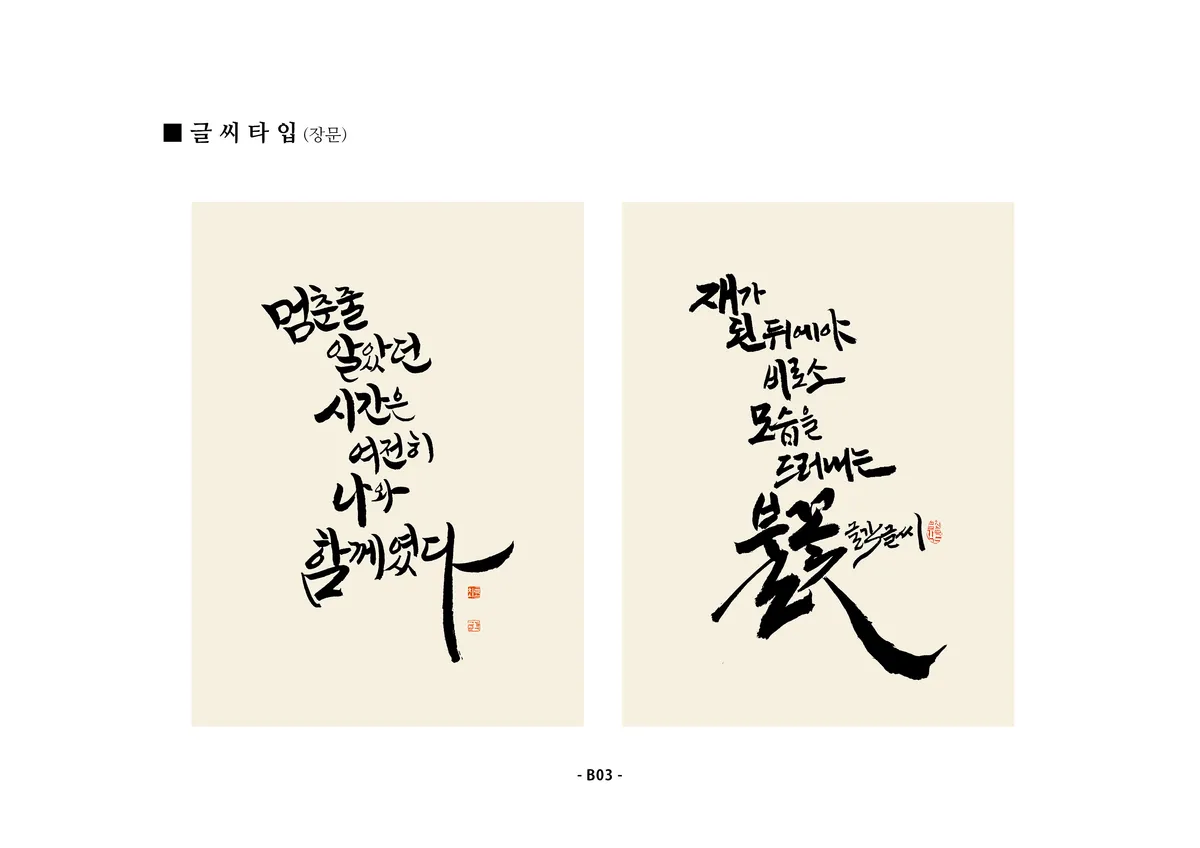 ■ 글씨타입 (장문)
멈춘줄
알았던
시간은
여전히
나와
함께였다
재가
된 뒤에야
비로소
모습을
드러내는
불꽃
글각글씨
- B03 -